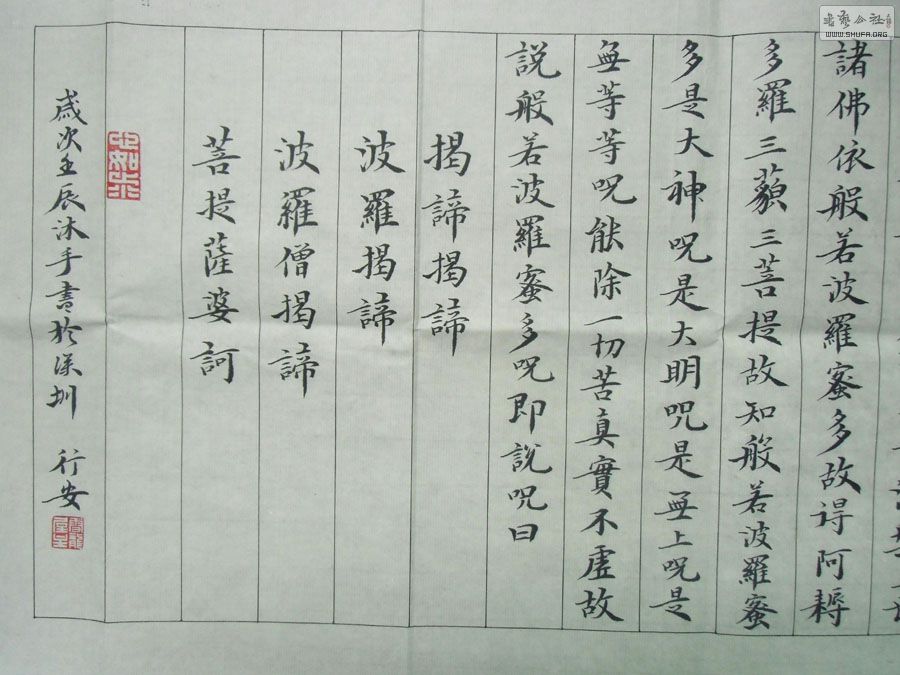 諸佛依般若波羅蜜多故得阿耨
多羅三藐三菩提故知般若波羅蜜
多是大神咒是大明咒是無上咒是
無等等咒能除一切苦真實不虛故
説般若波羅蜜多咒即說咒曰
揭諦揭諦
波羅揭諦
波羅僧揭諦
菩提薩婆訶
歲次壬辰沐手書於深圳 行安
WWW.SHUFA.ORG